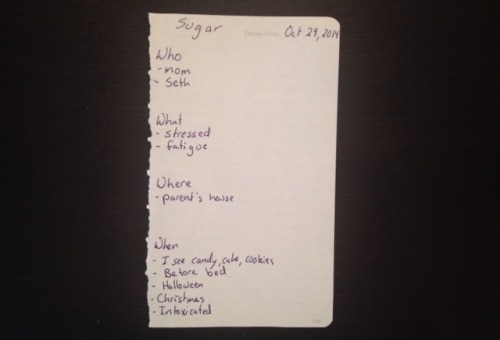 Sugar
Oct 29, 2014
Who
- mom
- Seth
What
- stressed
- fatigue
Where
- parent's house
When
- I see candy, cake, cookies
- Before bed
- Halloween
- Christmas
- Intoxicated